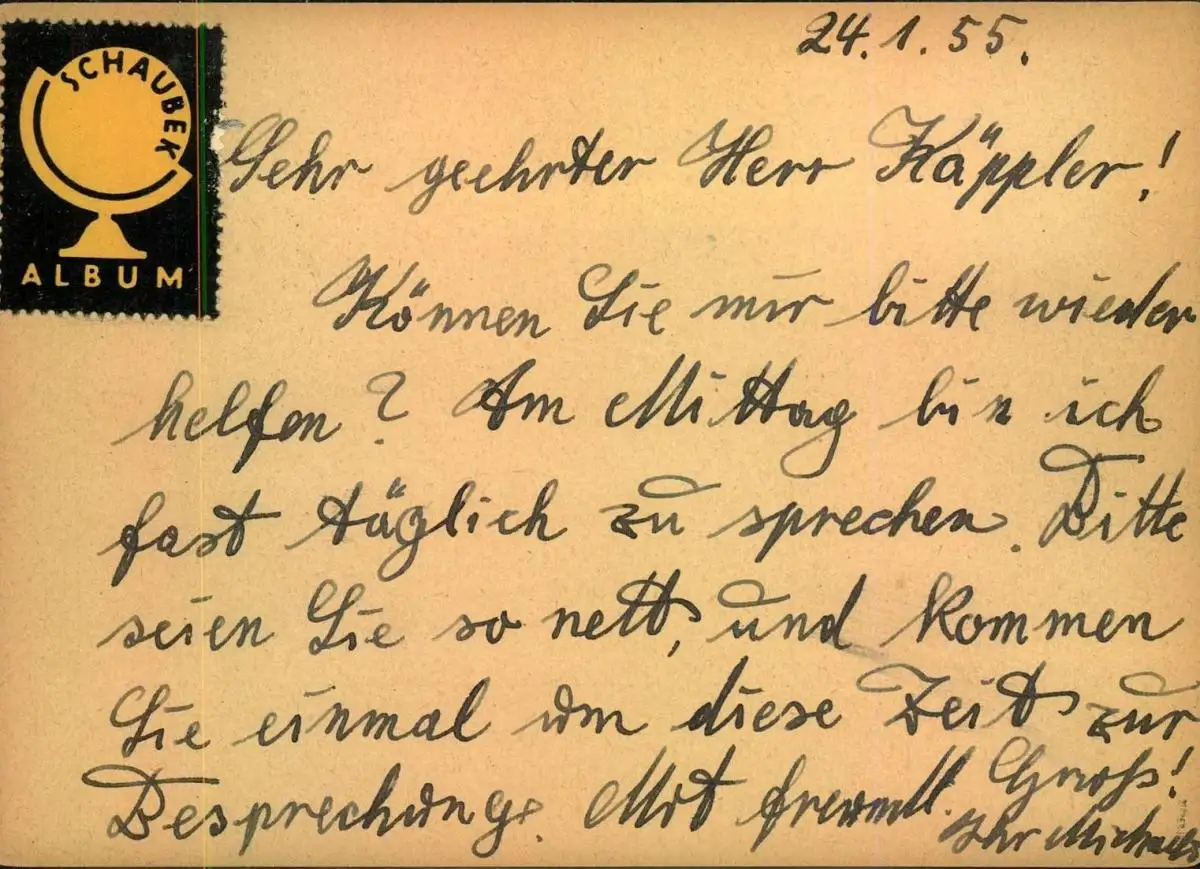 SCHAUBEK
ALBUM
24.1.55.
Sehr geehrter Herr Käppler!
Können Sie mir bitte wieder
helfen? Am Mittag bin ich
fast täglich zu sprechen. Bitte
seien Sie so nett, und kommen
Sie einmal um diese Zeit zur
Besprechung. Mit freundl. Gruß!
Ihr